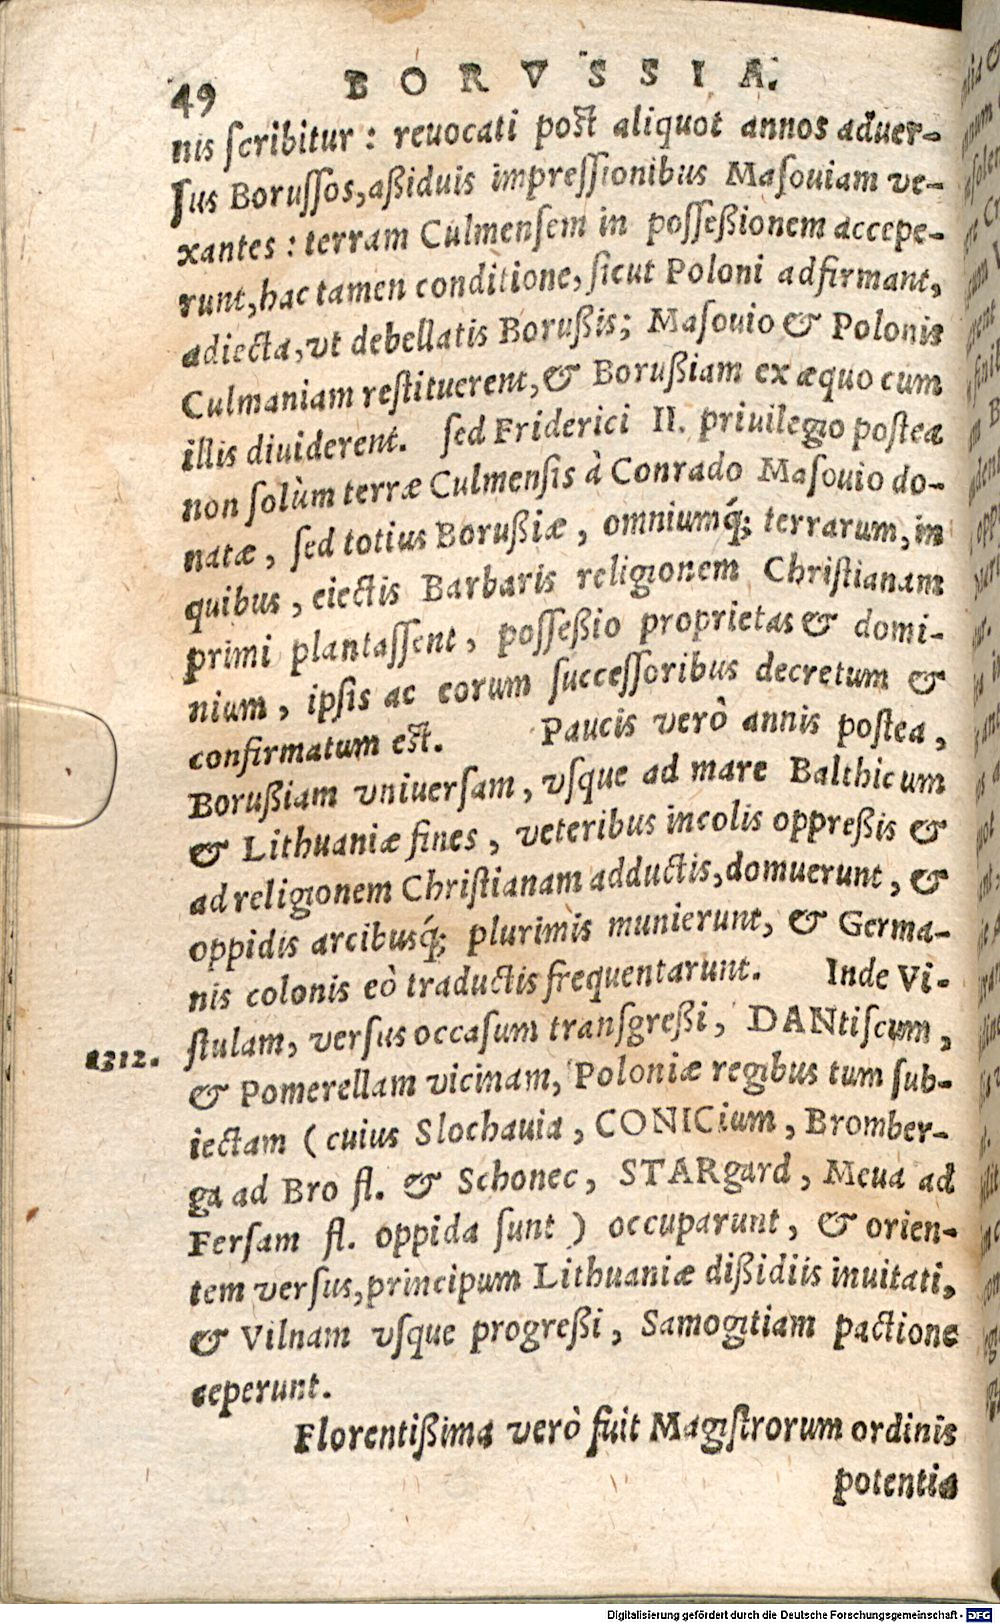 49 BORVSSIA.
nis ſcribitur: reuocati post aliquot annos aduer-
ſus Boruſſos, aßiduis impreſſionibus Maſouiam ve-
xantes: terram Culmenſem in poſſeßionem accepe-
runt, hac tamen conditione, ſicut Poloni adfirmant,
adiecta, vt debellatis Borußis; Maſouio & Polonis
Culmaniam reſtituerent, & Borußiam ex æquo cum
illis diuiderent. ſed Friderici II. priuilegio poſtea
non ſolùm terræ Culmenſis à Conrado Maſouio do-
natæ, ſed totius Borußiæ, omniumq́; terrarum, in
quibus, eiectis Barbaris religionem Chriſtianam
primi plantaſſent, poſſeßio proprietas & domi-
nium, ipſis ac eorum ſucceſſoribus decretum &
confirmatum eſt. Paucis verò annis poſtea,
Borußiam vniuerſam, vſque ad mare Balthicum
& Lithuaniæ fines, veteribus incolis oppreßis &
ad religionem Chriſtianam adductis, domuerunt, &
oppidis arcibusq́; plurimis munierunt, & Germa-
nis colonis eò traductis frequentarunt. Inde Vi-
1312. ſtulam, verſus occaſum transgreßi, DANtiſcum,
& Pomerellam vicinam, Poloniæ regibus tum ſub-
iectam (cuius Slochauia, CONICium, Bromber-
ga ad Bro fl. & Schonec, STARgard, Meua ad
Ferſam fl. oppida ſunt) occuparunt, & orien-
tem verſus, principum Lithuaniæ dißidiis inuitati,
& Vilnam vſque progreßi, Samogitiam pactione
ceperunt.
Florentißima verò fuit Magiſtrorum ordinis
potentia
Digitalisierung gefördert durch die Deutsche Forschungsgemeinschaft - DFG